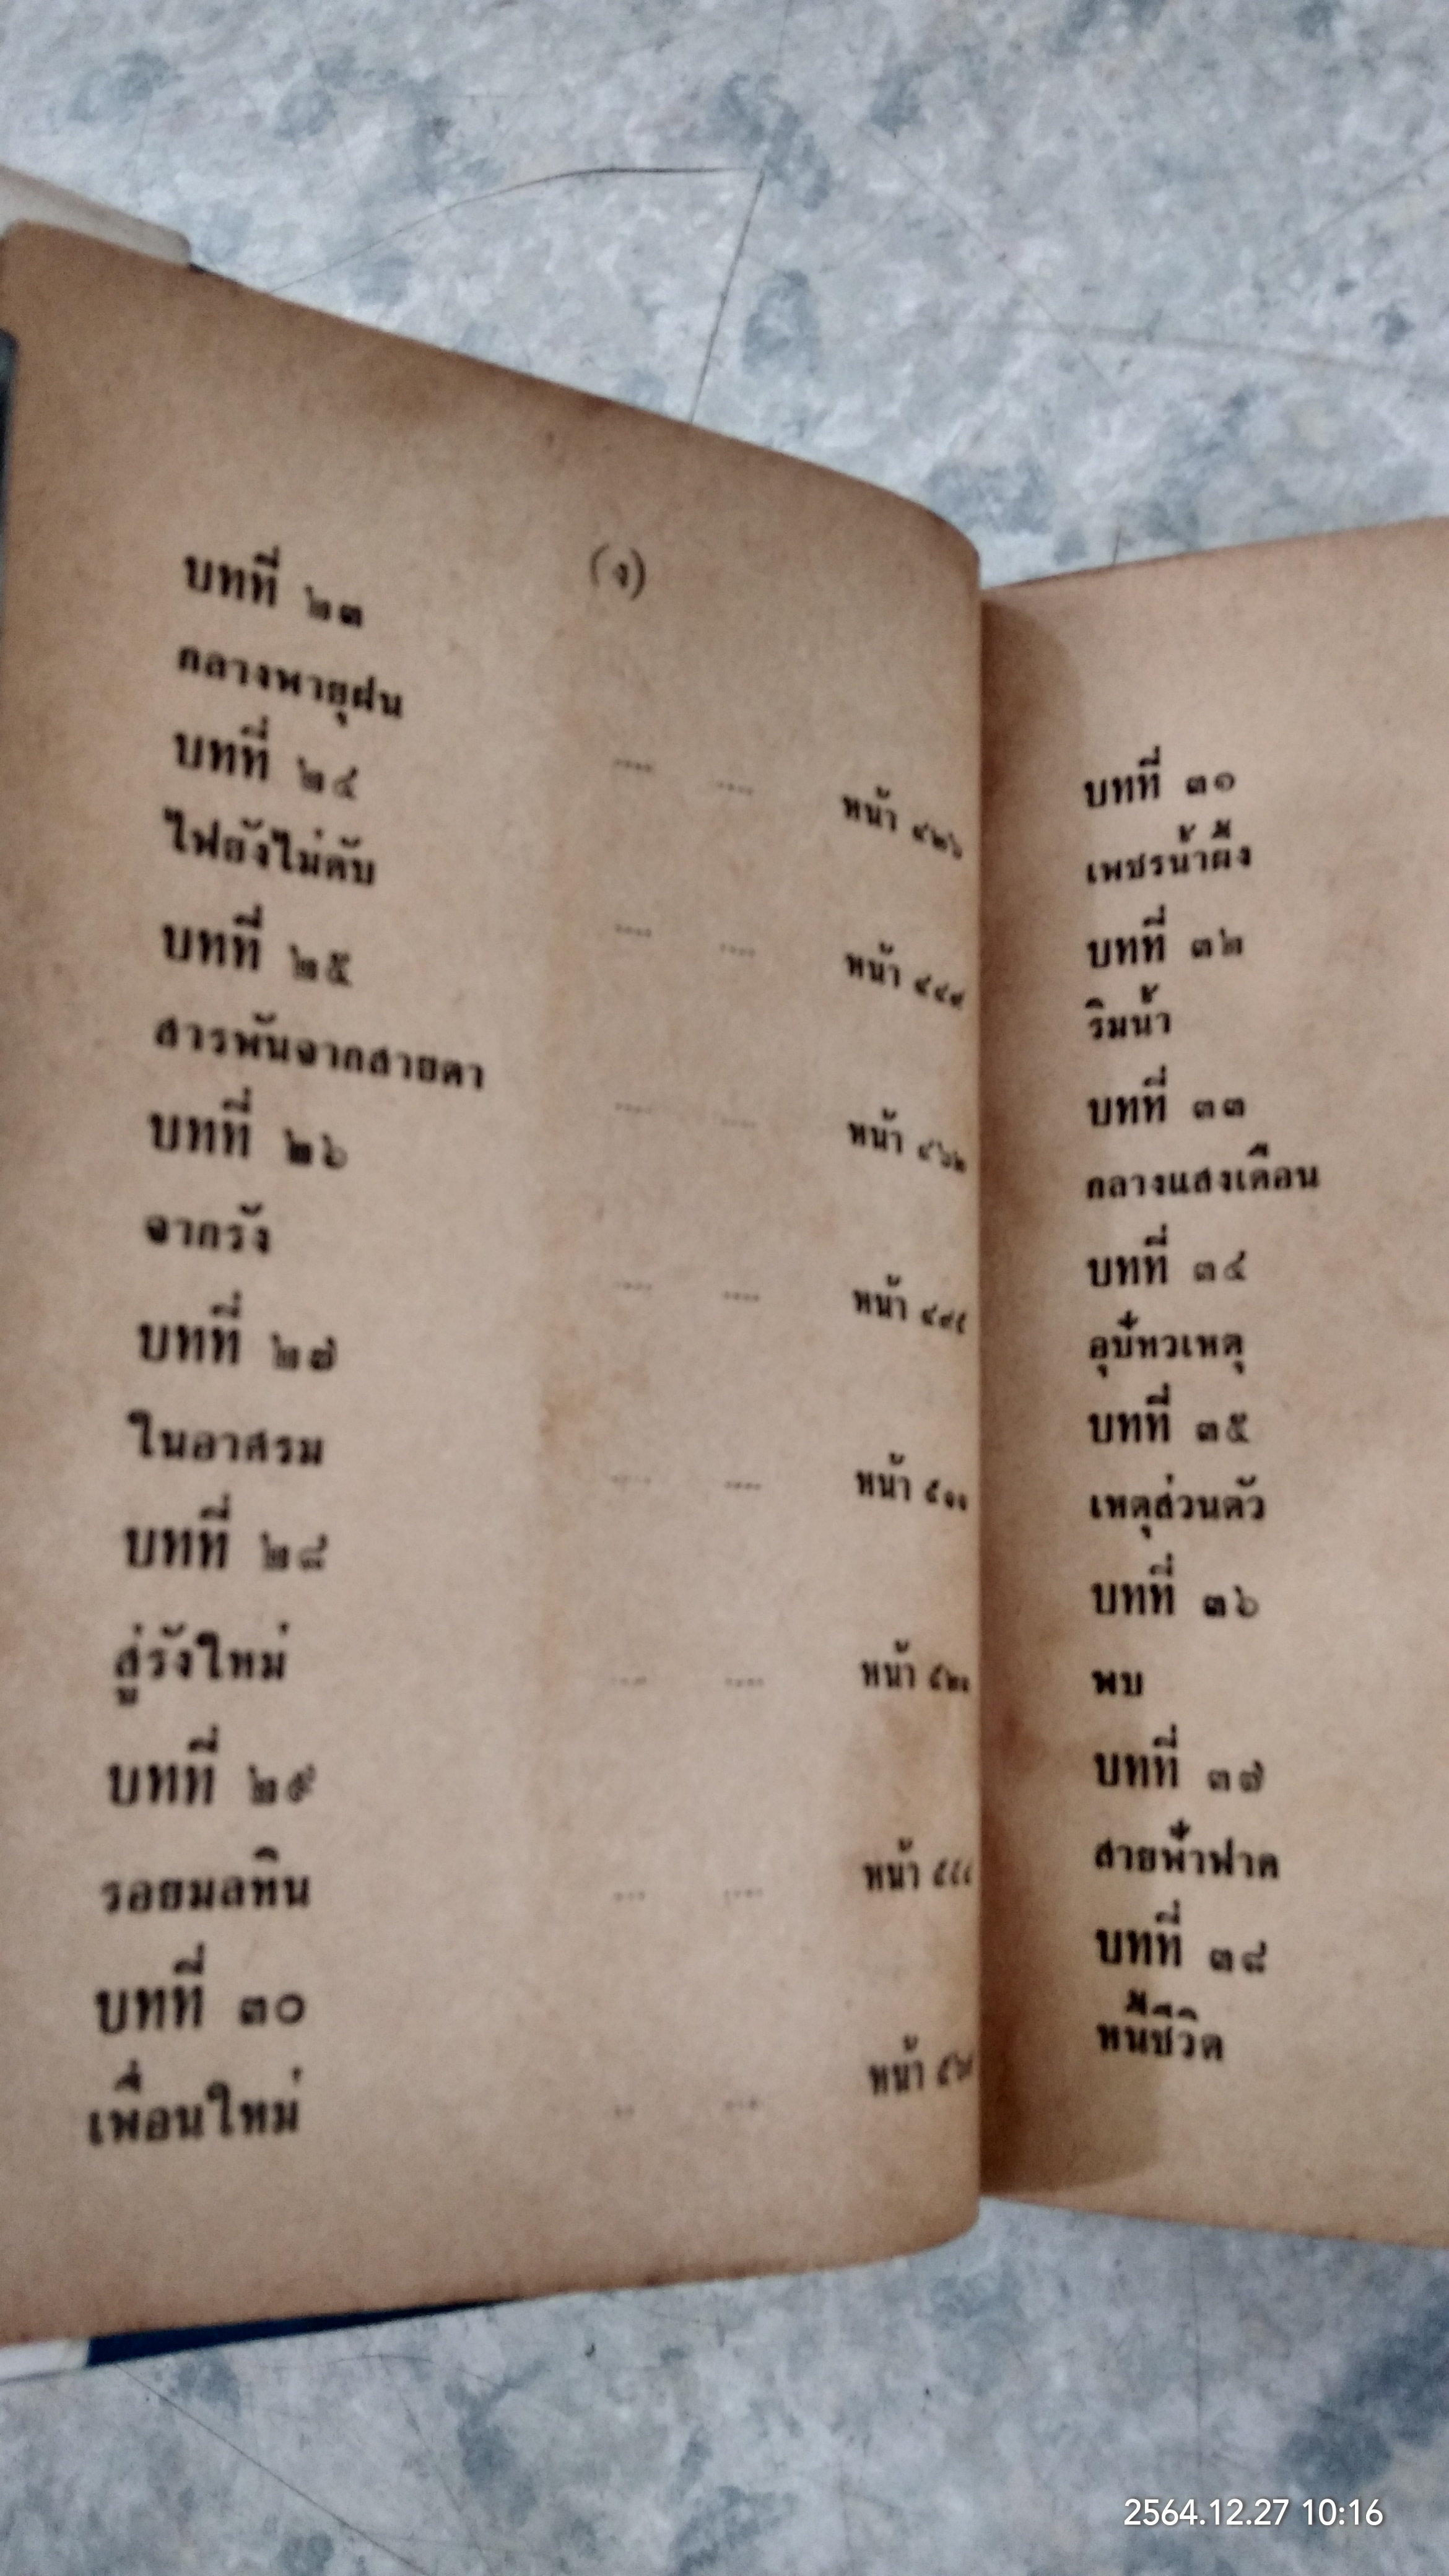 (ง)
บทที่ ๒๓
กลางพายุฝน .... .... หน้า ๔๒๖
บทที่ ๒๔
ไฟยังไม่ดับ .... .... หน้า
บทที่ ๒๕
สารพันจากสายตา .... .... หน้า ๔๖๒
บทที่ ๒๖
จากรัง .... .... หน้า
บทที่ ๒๗
ในอาศรม .... .... หน้า
บทที่ ๒๘
สู่รังใหม่ .... .... หน้า
บทที่ ๒๙
รอยมลทิน .... .... หน้า
บทที่ ๓๐
เพื่อนใหม่ .... .... หน้า
บทที่ ๓๑
เพชรน้ำผึ้ง
บทที่ ๓๒
ริมน้ำ
บทที่ ๓๓
กลางแสงเดือน
บทที่ ๓๔
อุบัทวเหตุ
บทที่ ๓๕
เหตุส่วนตัว
บทที่ ๓๖
พบ
บทที่ ๓๗
สายฟ้าฟาด
บทที่ ๓๘
หนี้ชีวิต
2564.12.27 10:16